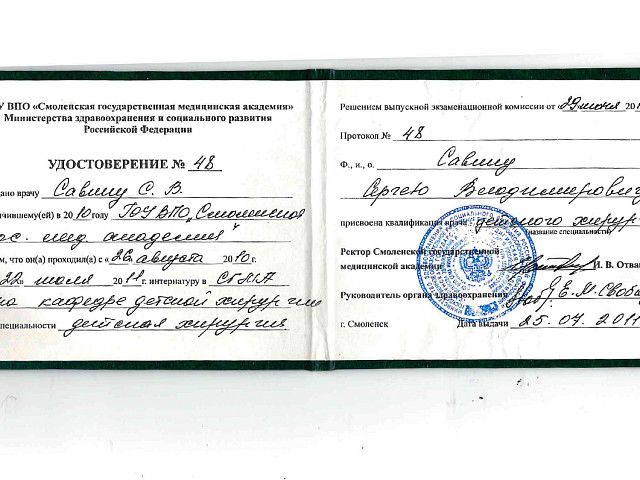 У ВПО «Смоленская государственная медицинская академия»
Министерства здравоохранения и социального развития
Российской Федерации
УДОСТОВЕРЕНИЕ № 48
дано врачу Савину С. В.
чившему(ей) в 2010 году ГОУ ВПО „Смоленская
гос. мед. академия"
м, что он(а) проходил(а) с «26 августа 2010 г.
22 » июля 2011 г. интернатуру в СГМА
на кафедре детской хирургии
специальности детская хирургия
Решением выпускной экзаменационной комиссии от «29 июня 201
Протокол № 48
Ф., и., о. Савину
Сергею Владимирович
присвоена квалификация врача детского хирур
(название специальности)
Ректор Смоленской государственной
медицинской академии И. В. Отва
Руководитель органа здравоохранения Е. М. Своба
г. Смоленск Дата выдачи 25. 07. 2011